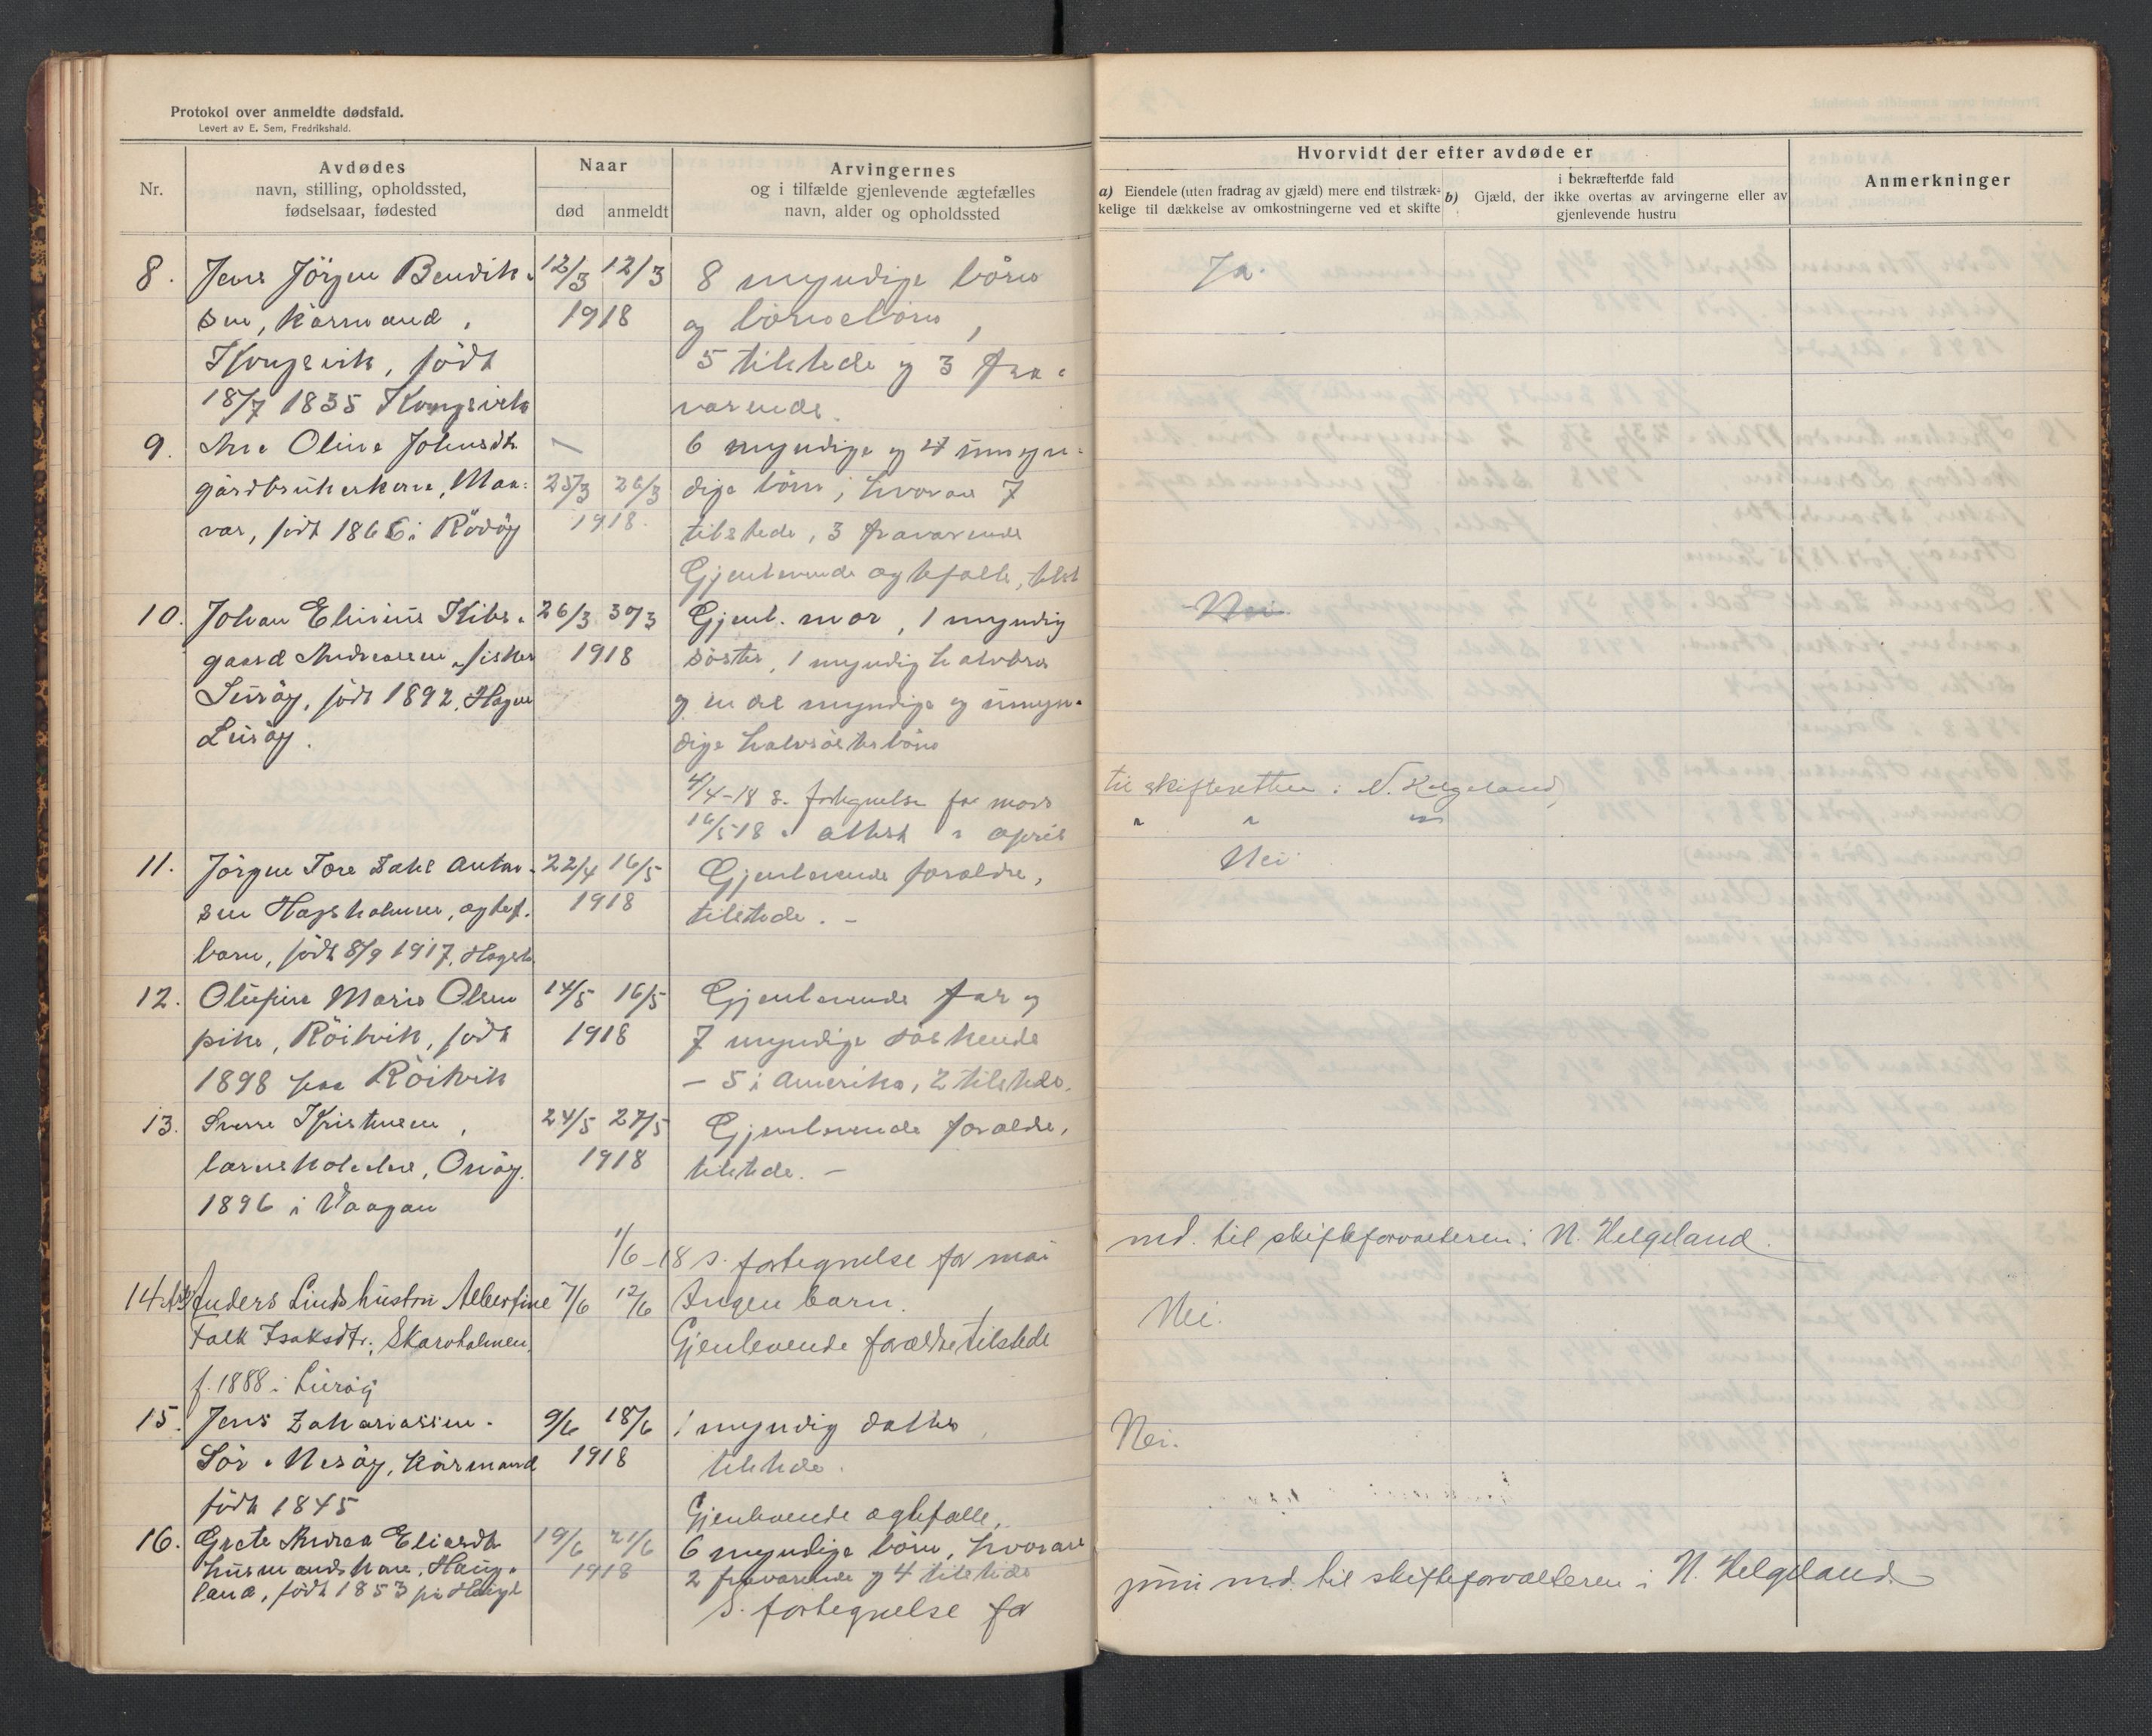 Protokol over anmeldte dødsfald.
Levert av E. Sem, Fredrikshald.
Nr.
Avdødes
navn, stilling, opholdssted,
fødselsaar, fødested
Naar
død
anmeldt
Arvingernes
og i tilfælde gjenlevende ægtefælles
navn, alder og opholdssted
Hvorvidt der efter avdøde er
a) Eiendele (uten fradrag av gjæld) mere end tilstræk-
kelige til dækkelse av omkostningerne ved et skifte
b) Gjæld, der
i bekræftende fald
ikke overtas av arvingerne eller av
gjenlevende hustru
Anmerkninger
8. Jens Jörgen Bendik- 12/3 12/3 8 myndige börn Ja.
sen, kårmand, 1918 og börnebörn,
Kongsvik, födt 5 tilstede og 3 fra-
18/7 1835 Kongsvik værende.
9. Ane Oline Johnsdtr 6 myndige og 4 umyn-
gårdbrukerkone, 25/3 26/3 dige börn, hvorav 7
var, födt 1866 i Rödöy 1918. tilstede, 3 fraværende
Gjenlevende ægtefælle, tilst
10. Johan Elinius Kibs- 26/3 30/3 Gjenl. mor, 1 myndig Nei.
gaard Andreassen, fisker 1918 söster, 1 myndig halvbror
Luröy, födt 1892, og en del myndige og umyn-
Luröy. dige halvsösterbörn
4/4-18 s. fortegnelse for mars til skifteretten i N. Helgeland,
16/5 18 " attest " april " " "
11. Jörgen Tore Dahl Anton- 22/4 16/5 Gjenlevende forældre, Nei
sen Hagsholmen, ægtef. 1918 tilstede. -
barn, födt 8/9 1917,
12. Olufine Marie Olsen 14/5 16/5 Gjenlevende far og
pike, Röitvik, födt 1918 7 myndige söskende
1898 paa Röitvik - 5 i Amerika, 2 tilstede.
13. Sverre Kristensen, 24/5 27/5 Gjenlevende forældre,
Onöy. 1918 tilstede. -
1896 i Vaagan
1/6-18 s. fortegnelse for mai md. til skifteforvalteren i N. Helgeland.
14. Anders Linds hustru Albertine 7/6 12/6 Ingen barn. Nei.
Falk Isaksdtr., Skarvholmen, Gjenlevende forældre tilstede
f. 1888 i Luröy
15. Jens Zakariassen. 9/6 18/6 1 myndig datter, Nei.
Sör-Nesöy, kårmand 1918 tilstede.
födt 1845
Gjenlevende ægtefælle,
16. Grete Andrea Eliasdtr 19/6 21/6 6 myndige börn, hvorav
husmandskone, Haug- 1918 2 fraværende og 4 tilstede
land, födt 1853 på Haugl
S. fortegnelse for juni md. til skifteforvalteren i N. Helgeland.